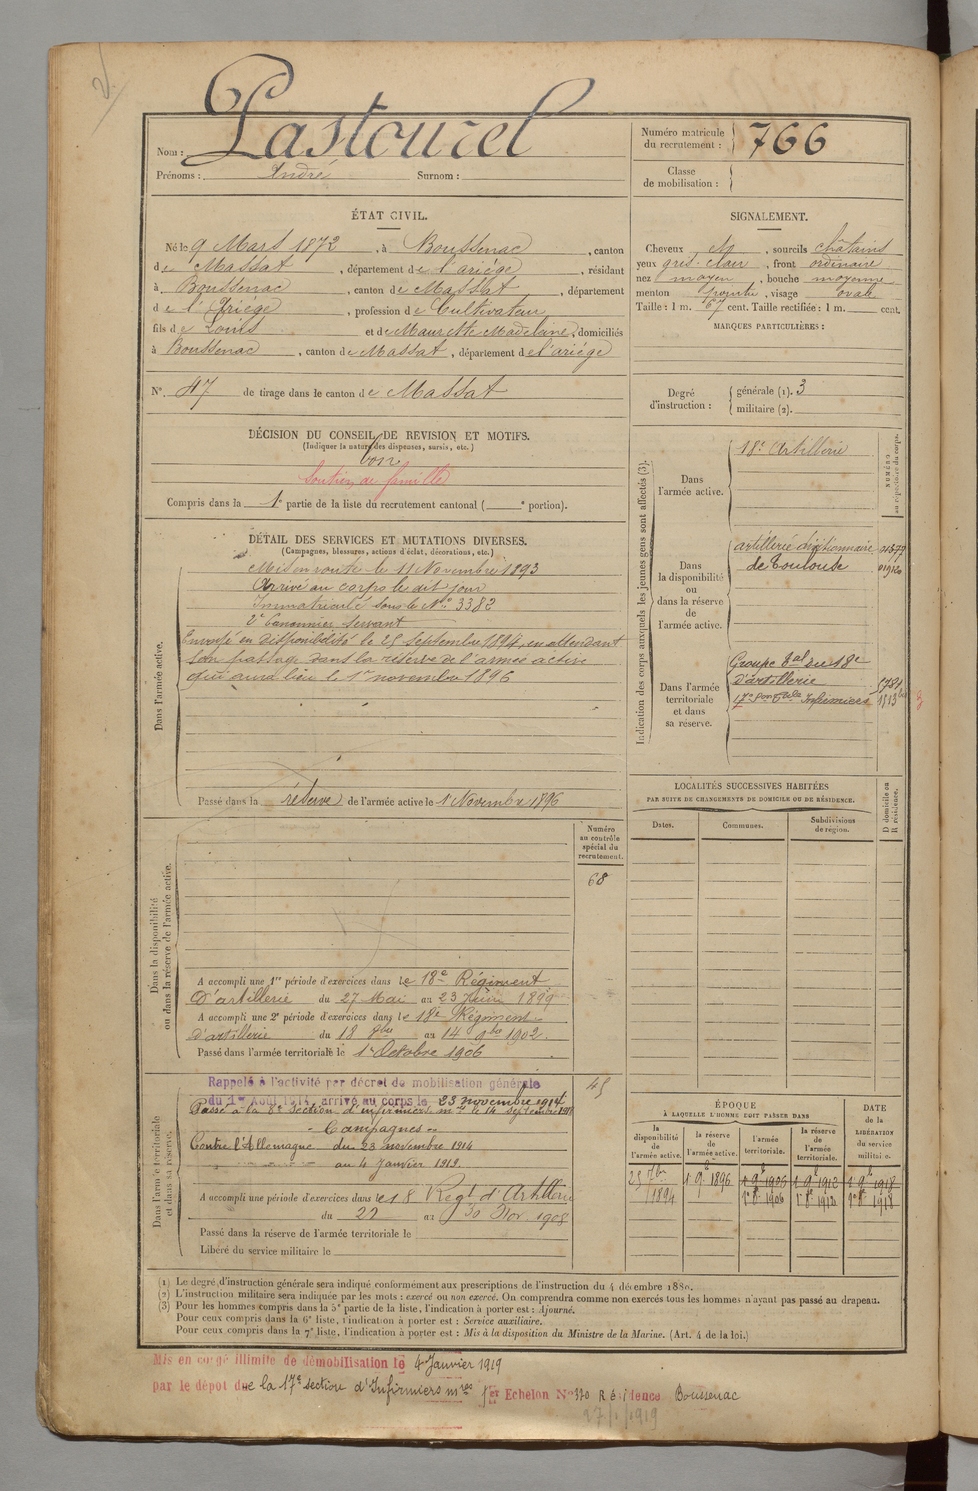 Nom : Lastourel
Prénoms : André Surnom :
Numéro matricule du recrutement : 766
Classe de mobilisation :
ÉTAT CIVIL.
Né le 9 Mars 1872, à Boussenac, canton
de Massat, département de l'ariége, résidant
à Boussenac, canton de Massat, département
de l'Ariége, profession de Cultivateur
fils de Louis et de Maurette Madeleine, domiciliés
à Boussenac, canton de Massat, département de l'ariége
N° 47 de tirage dans le canton de Massat
SIGNALEMENT.
Cheveux et, sourcils châtains
yeux gris-clair, front ordinaire
nez moyen, bouche moyenne
menton, visage ovale
Taille : 1 m. 67 cent. Taille rectifiée : 1 m. cent.
MARQUES PARTICULIÈRES :
Degré d'instruction : générale (1). 3
militaire (2).
DÉCISION DU CONSEIL DE REVISION ET MOTIFS.
(Indiquer la nature des dispenses, sursis, etc.)
bon
Soutien de famille
Compris dans la 1e partie de la liste du recrutement cantonal ( e portion).
DÉTAIL DES SERVICES ET MUTATIONS DIVERSES.
(Campagnes, blessures, actions d'éclat, décorations, etc.)
Dans l'armée active.
Mis en route le 11 Novembre 1893
Arrivé au corps le dit jour
Immatriculé sous le No 3382
2e Canonnier servant
Envoyé en disponibilité le 25 septembre 1894, en attendant
son passage dans la réserve de l'armée active
qui aura lieu le 1er novembre 1896
Passé dans la réserve de l'armée active le 1 Novembre 1896
Indication des corps auxquels les jeunes gens sont affectés (3).
NUMÉRO au répertoire du corps.
Dans l'armée active.
18e Artillerie
Dans la disponibilité ou dans la réserve de l'armée active.
artillerie divisionnaire
de Toulouse
Dans l'armée territoriale et dans sa réserve.
Groupe Tal du 18e
d'artillerie
17e Son Infirmiers
LOCALITÉS SUCCESSIVES HABITÉES
PAR SUITE DE CHANGEMENTS DE DOMICILE OU DE RÉSIDENCE.
D domicile ou R résidence.
Dates. Communes. Subdivisions de région.
Dans la disponibilité ou dans la réserve de l'armée active.
Numéro au contrôle spécial du recrutement.
68
A accompli une 1re période d'exercices dans le 18e Régiment
d'artillerie du 27 Mai au 23 Juin 1899
A accompli une 2e période d'exercices dans le 18e Régiment
d'artillerie du 18 8bre au 14 9bre 1902.
Passé dans l'armée territoriale le 1er Octobre 1906
Dans l'armée territoriale et dans sa réserve.
45
Rappelé à l'activité par décret de mobilisation générale
du 1er Août 1914, arrivé au corps le 23 novembre 1914
Passé à la 8e Section d'infirmiers mres le 14 septembre
Campagnes
Contre l'Allemagne du 23 novembre 1914
au 4 Janvier 1919.
A accompli une période d'exercices dans le 18 Regt d'Artillerie
du 22 au 30 Nov 1908
Passé dans la réserve de l'armée territoriale le
Libéré du service militaire le
ÉPOQUE
À LAQUELLE L'HOMME DOIT PASSER DANS
DATE de la LIBÉRATION du service militaire.
la disponibilité de l'armée active. la réserve de l'armée active. l'armée territoriale. la réserve de l'armée territoriale.
25 7bre 1894 1 9e 1896 1 9e 1906 1 9e 1912 1 9e 1918
1er 8e 1906 1er 8e 1912 1er 8e 1918
(1) Le degré d'instruction générale sera indiqué conformément aux prescriptions de l'instruction du 4 décembre 1889.
(2) L'instruction militaire sera indiquée par les mots : exercé ou non exercé. On comprendra comme non exercés tous les hommes n'ayant pas passé au drapeau.
(3) Pour les hommes compris dans la 5e partie de la liste, l'indication à porter est : Ajourné.
Pour ceux compris dans la 6e liste, l'indication à porter est : Service auxiliaire.
Pour ceux compris dans la 7e liste, l'indication à porter est : Mis à la disposition du Ministre de la Marine. (Art. 4 de la loi.)
Mis en congé illimité de démobilisation le 4 Janvier 1919
par le dépôt de la 17e section d'Infirmiers mres 1er Echelon N° 370 Résidence Boussenac
27/1/1919